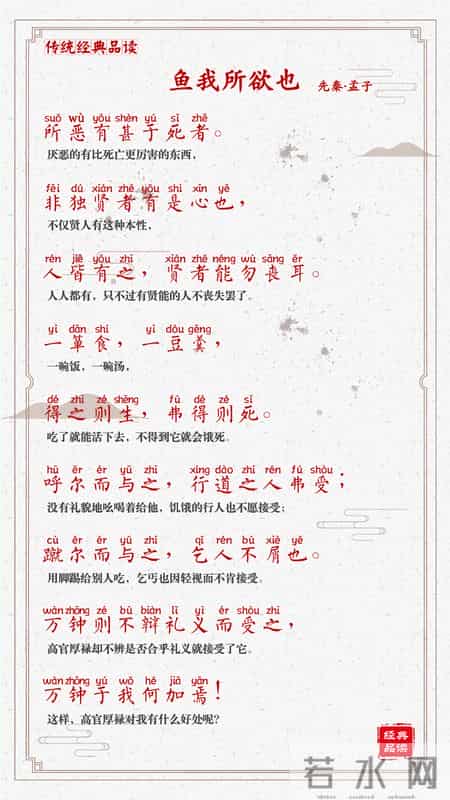 传统经典品读
鱼我所欲也 先秦·孟子
suǒ wù yǒu shèn yú sǐ zhě
所恶有甚于死者。
厌恶的有比死亡更厉害的东西，
fēi dú xián zhě yǒu shì xīn yě
非独贤者有是心也，
不仅贤人有这种本性，
rén jiē yǒu zhī xián zhě néng wù sàng ěr
人皆有之，贤者能勿丧耳。
人人都有，只不过有贤能的人不丧失罢了。
yì dān shí yí dòu gēng
一箪食，一豆羹，
一碗饭，一碗汤，
dé zhī zé shēng fú dé zé sǐ
得之则生，弗得则死。
吃了就能活下去，不得到它就会饿死。
hū ěr ér yǔ zhī xíng dào zhī rén fú shòu
呼尔而与之，行道之人弗受；
没有礼貌地吆喝着给他，饥饿的行人也不愿接受；
cù ěr ér yǔ zhī qǐ rén bú xiè yě
蹴尔而与之，乞人不屑也。
用脚踢给别人吃，乞丐也因轻视而不肯接受。
wàn zhōng zé bú biàn lǐ yì ér shòu zhī
万钟则不辩礼义而受之，
高官厚禄却不辨是否合乎礼义就接受了它。
wàn zhōng yú wǒ hé jiā yān
万钟于我何加焉！
这样，高官厚禄对我有什么好处呢？
经典
品读
若水网